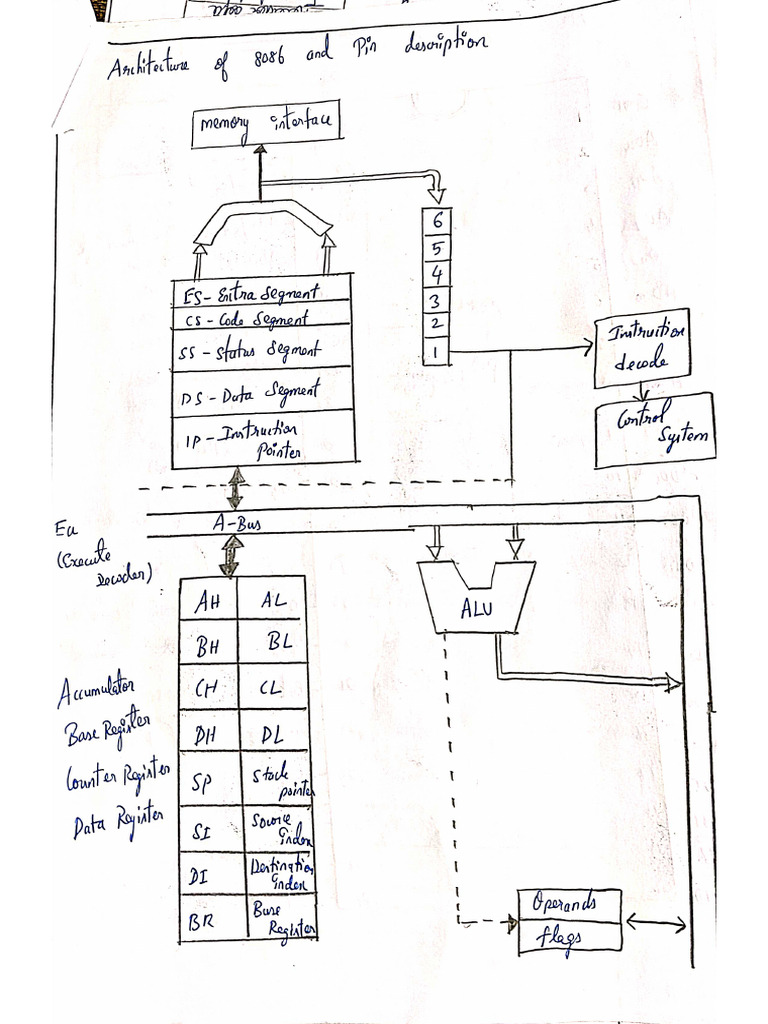 Architecture of 8086 and Pin description
memory interface
6
5
4
3
2
1
ES - Extra Segment
CS - Code Segment
SS - Status Segment
DS - Data Segment
IP - Instruction
Pointer
Instruction
decode
Control
System
A-Bus
Eu
(Execute
Decoder)
ALU
AH AL
BH BL
CH CL
DH DL
SP Stack
pointer
SI Source
index
DI Destination
index
BR Base
Register
Accumulator
Base Register
Counter Register
Data Register
Operands
flags